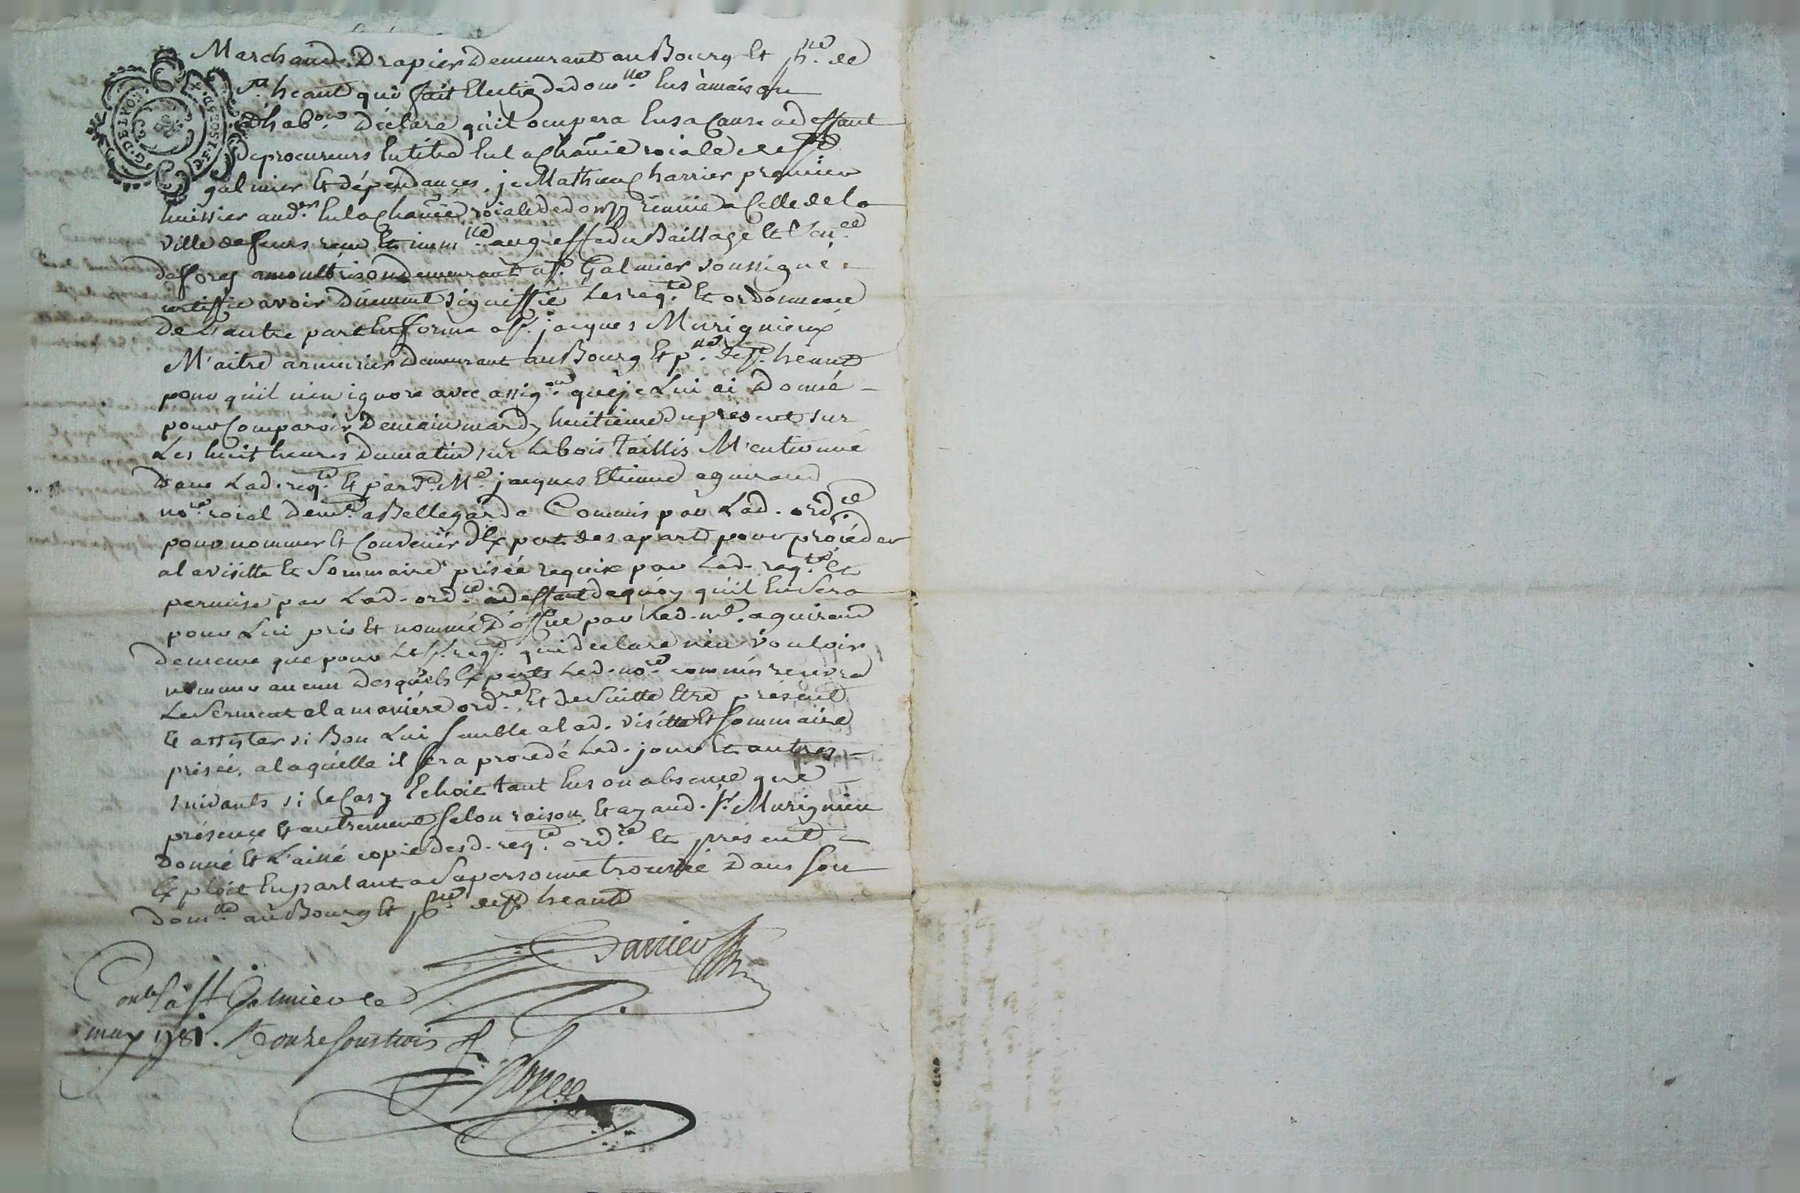 Marchand Drapier Demeurant au Bourg Et psse de
St heant qui fait Electio de dom.lle En sa maison
d'hab.on Déclare qu'il ocupera En sa Cause a deffaut
de procureurs En titre En la Chanie roiale de St
galmier Et dépendances, je Mathieu Charrier premier
huissier aud.er En la Chanie roiale de donzy réunie a Celle de la
ville de feurs reçu Et imm.lé au greffe du Baillage Et Sen.cée
de forez a montbrison demeurant a St. Galmier soussigné
certiffie avoir Dûement signiffié Les req.te Et ordonnance
De L'autre part En forme a Sr. jacques Murigneux
Maitre armurier Demeurant au Bourg Et p.sse de St. heant
pour qu'il n'en ignore avec assig.on que je Lui ai Donné
pour Comparoir Demain mardy huitieme du présent sur
Les huit heures du matin sur Le bois Taillis Mentionné
Dans Lad. req.te Et pard.t Me. jacques Etienne aguiraud
no.re roial Dem.t a Bellegarde Commis par Lad. ord.ce
pour nommer Et Convenir d'Expert des a part pour procéder
a la visitte Et Sommaire prisée requise par Lad. req.te Et
permise par Lad. ord.ce a deffaut de quoy qu'il En Sera
pour Lui pris Et nommé D'office par Led. me. aguiraud
de meme que pour Le Sr. req.t qui déclare n'en vouloir
nommer aucun Desquels Experts Led. no.re commis recevra
Le Serment a la manière ord.re Et de Suitte Etre présent
Et assister si Bon Lui Semble a lad. visitte Et Sommaire
prisée, a laquelle il Sera procédé Led. jour Et autres
suivants si le Cas y Echoit tant En son absence que
présence Et autrement Selon raison Et ay aud. Sr Murigneu
Donné Et Laissé copie desd. req.te ord.ce Et présent
Exploit En parlant a Sa personne trouvée Dans Son
dom.lle au Bourg Et psse de St heant
Charrier
Contlé à St Galmier le
may 1781. Reçu Douze sous trois d